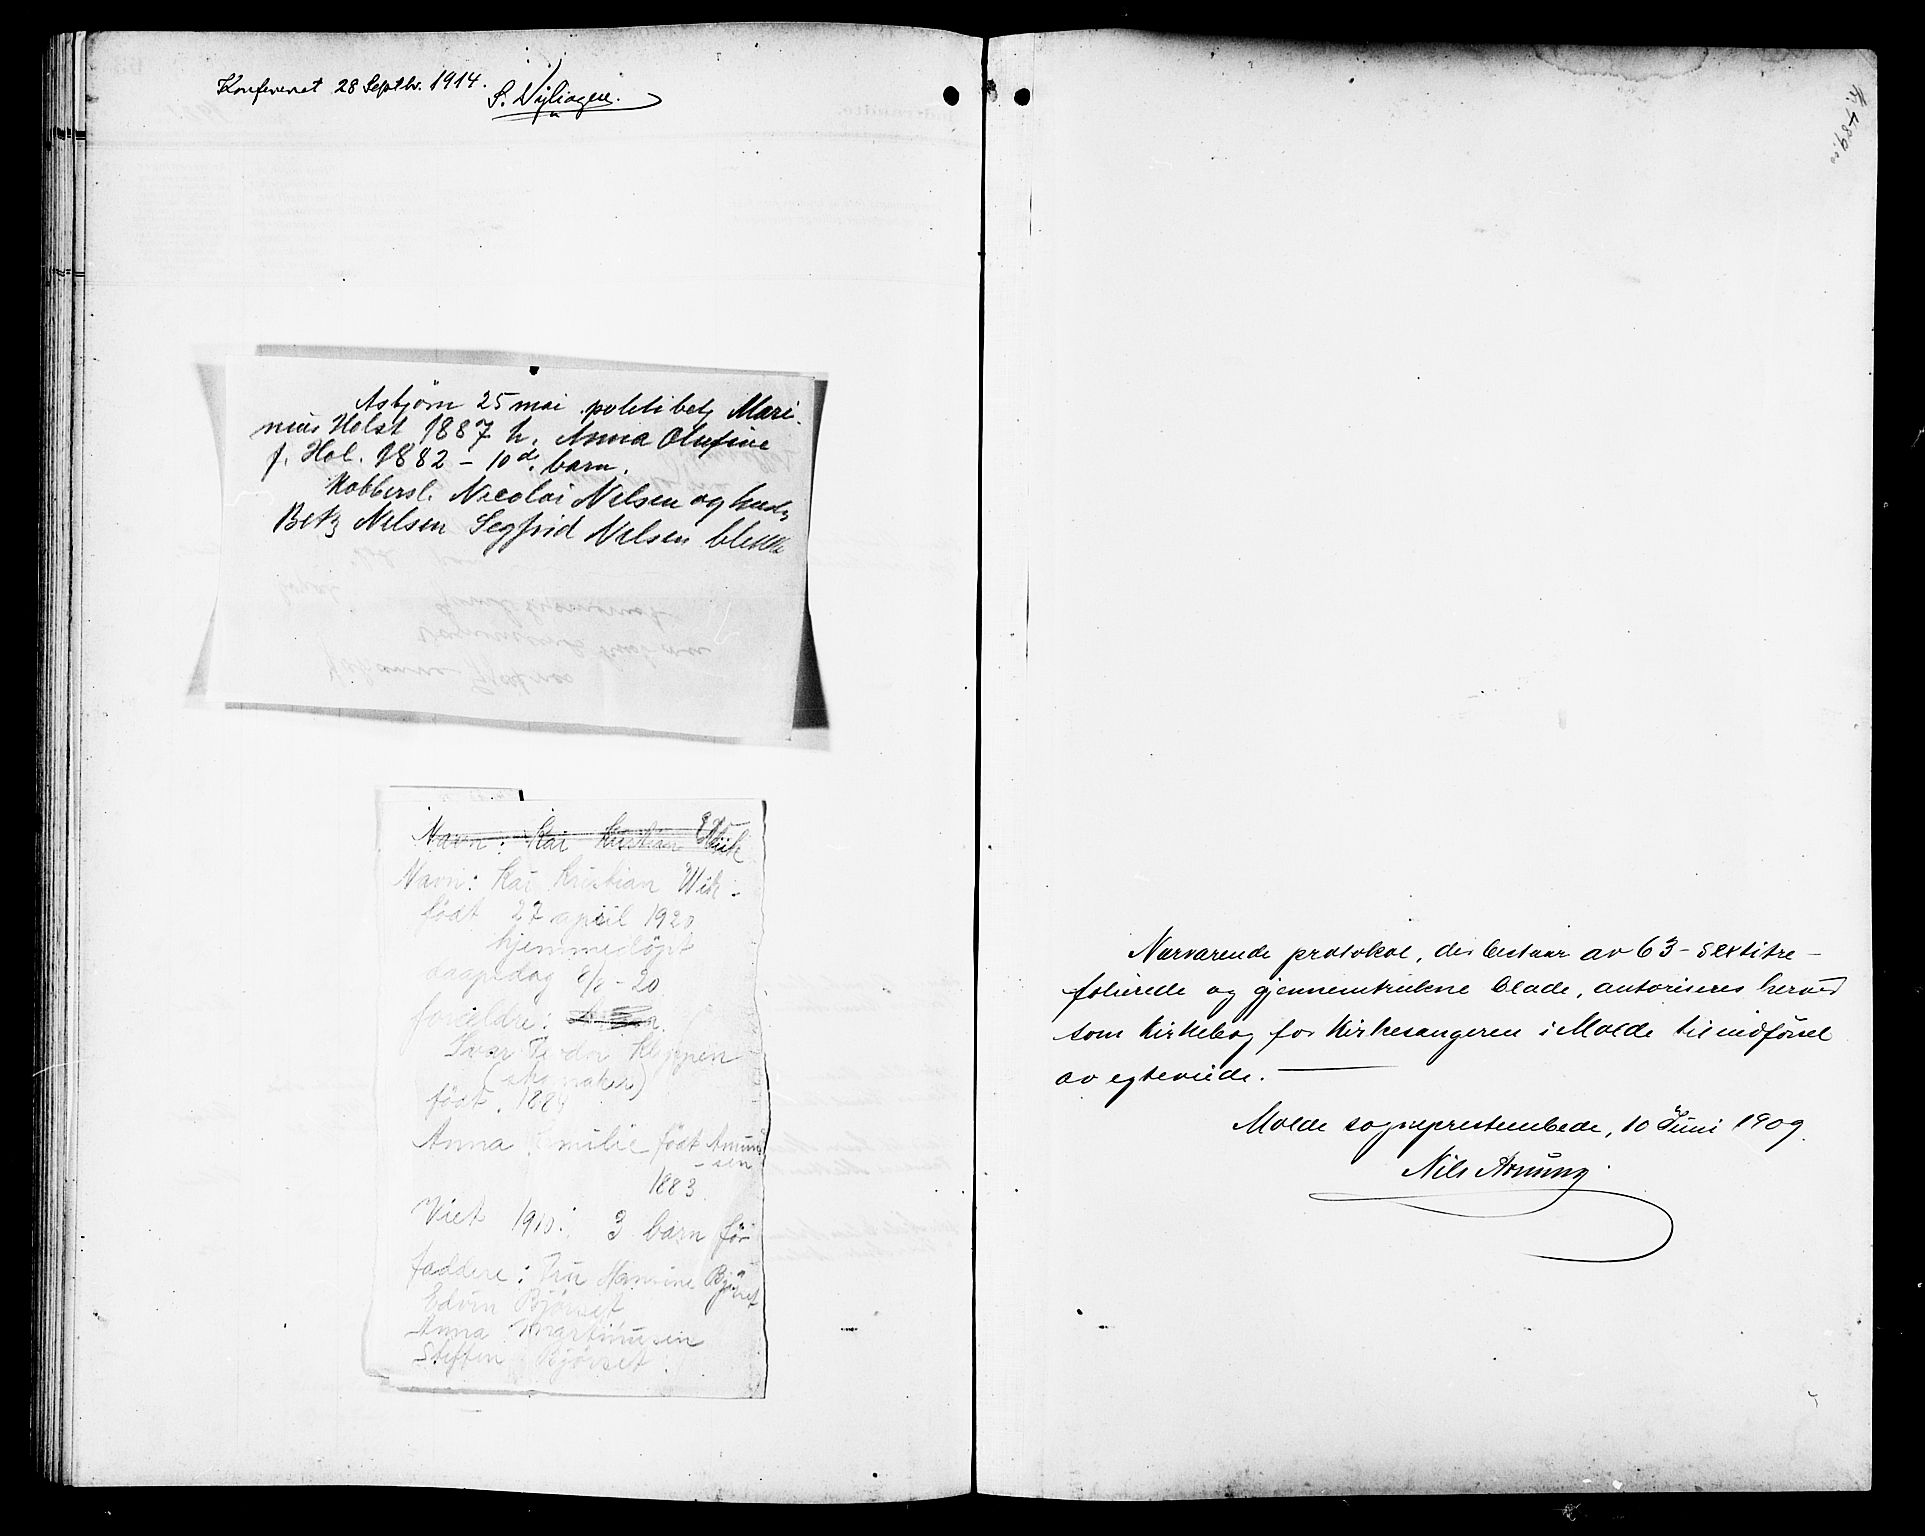 Konfereret 28 Septbr. 1914.
Asbjørn 25 mai politibetj Mari-
nius Holst 1887 h. Anna Olufine
f. Hol. 1882 - 10de barn.
Kobbersl. Nicolai Nilsen og hust
Betz Nilsen Segfrid Nilsen blekk
Navn: Kai Kristian Wiik
Navn: Kai Kristian Wik
født 27 april 1920
hjemmedöpt
daapsdag 8/8 - 20
foreldre:
Ivar Teodor Kleppen
(skomaker)
födt. 1884
Anna Emilie födt Amund
- sen
1883
Viet 1910: 3 barn før
faddere: Fru Nansine Bjørset
Edvin Bjørset
Anna Martinusen
Steffen Bjørset
Nærværende protokol, der bestaar av 63 - sextitre -
folierede og gjennemtrukne blade, autoriseres herved
som kirkebog for kirkesangeren i Molde til indførsel
av egteviede.
Molde sogneprestembede, 10 Juni 1909.
Nils Arnung